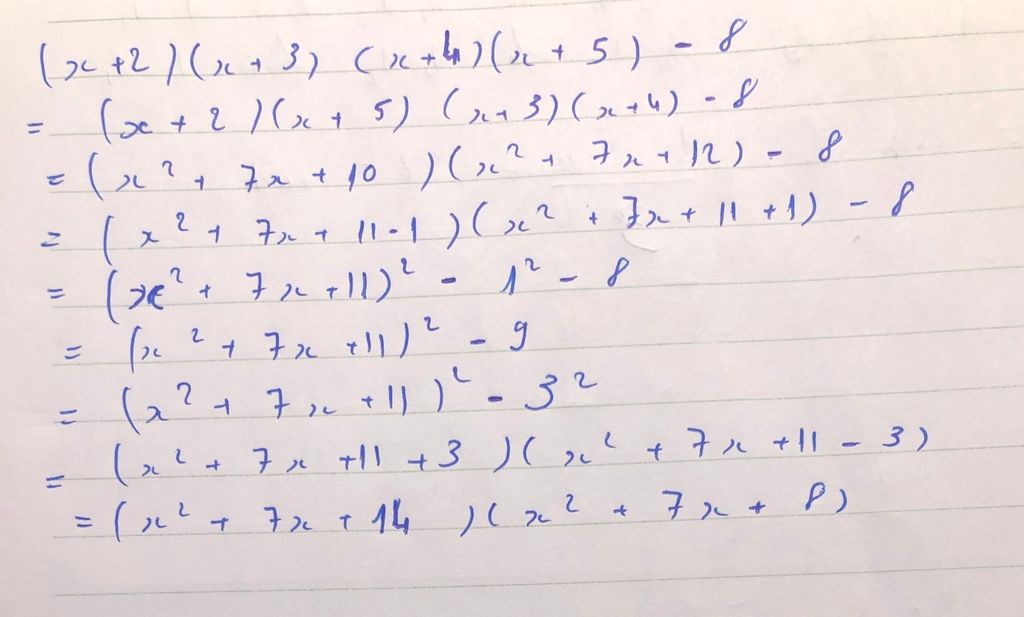 (x+2)(x+3) (x+4)(x+5) - 8
= (x+2)(x+5) (x+3)(x+4) - 8
= (x² + 7x + 10)(x² + 7x + 12) - 8
= (x² + 7x + 11-1)(x² + 7x + 11 + 1) - 8
= (x² + 7x + 11)² - 1² - 8
= (x² + 7x + 11)² - 9
= (x² + 7x + 11)² - 3²
= (x² + 7x + 11 + 3)(x² + 7x + 11 - 3)
= (x² + 7x + 14)(x² + 7x + 8)